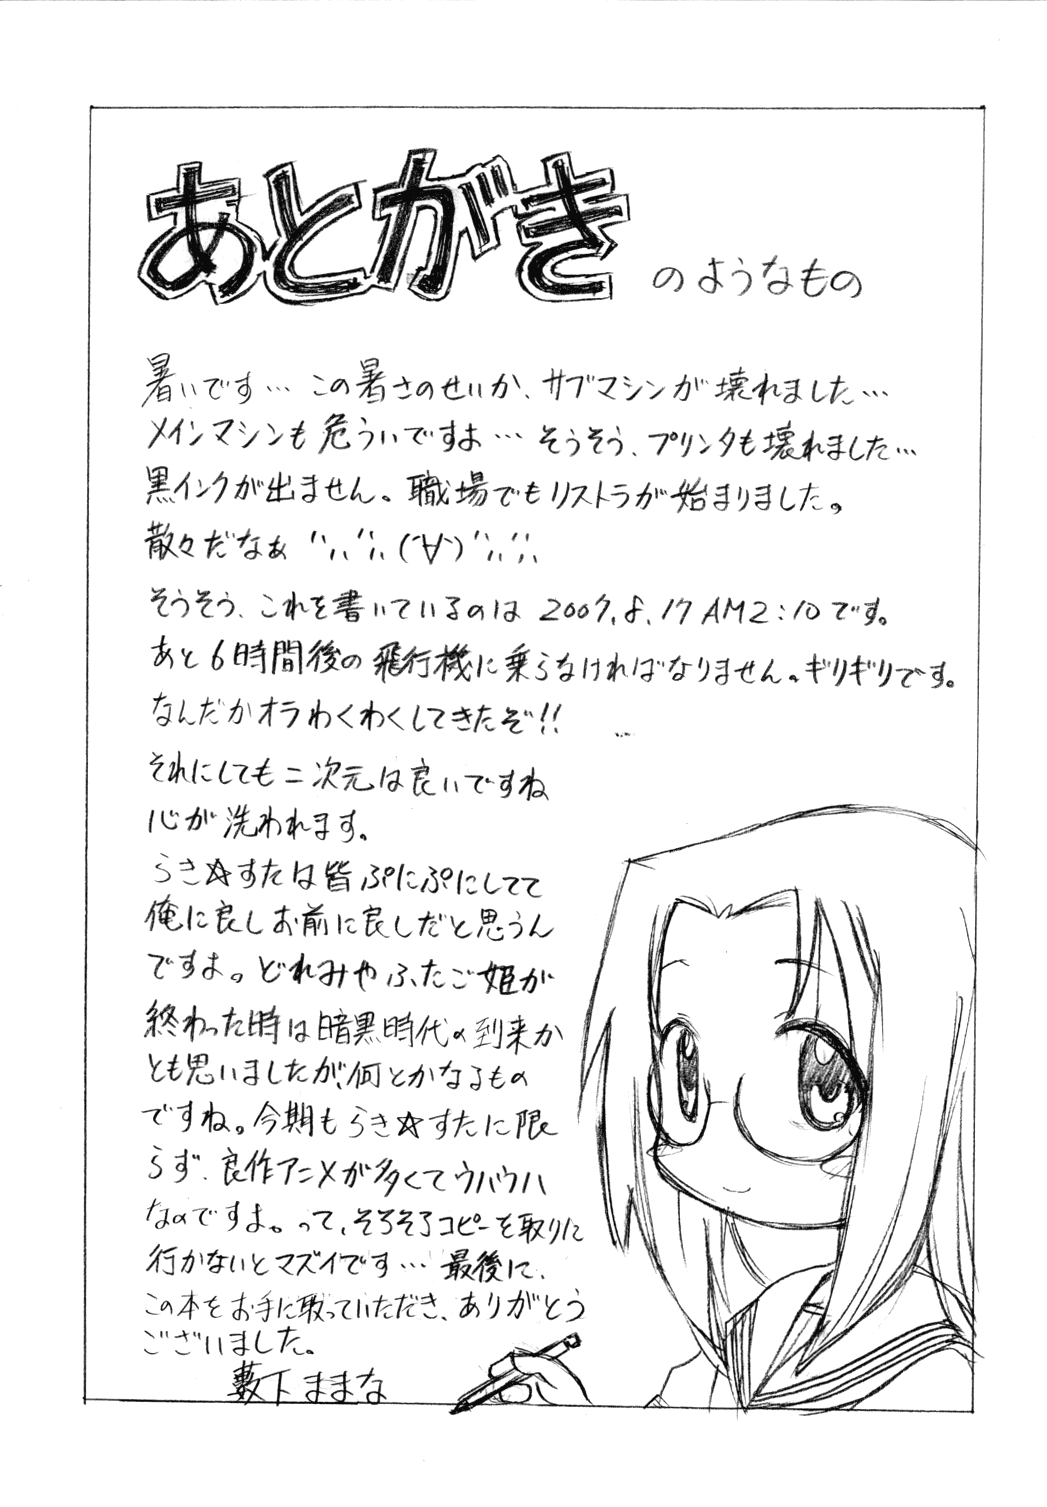 あとがき のようなもの
暑いです… この暑さのせいか、サブマシンが壊れました…
メインマシンも危ういですよ… そうそう、プリンタも壊れました…
黒インクが出ません。職場でもリストラが始まりました。
散々だなぁ ヾ;、ヾ;、(´∀`)ヾ;、ヾ;、
そうそう、これを書いているのは 2007,8,17 AM2:10です。
あと6時間後の飛行機に乗らなければなりません。ギリギリです。
なんだかオラわくわくしてきたぞ!!
それにしても二次元は良いですね
心が洗われます。
らき☆すたは皆ぷにぷにしてて
俺に良しお前に良しだと思うん
ですよ。どれみやふたご姫が
終わった時は暗黒時代の到来か
とも思いましたが、何とかなるもの
ですね。今期もらき☆すたに限
らず、良作アニメが多くてウハウハ
なのですよ。って、そろそろコピーを取りに
行かないとマズイです… 最後に、
この本をお手に取っていただき、ありがとう
ございました。
藪下ままな